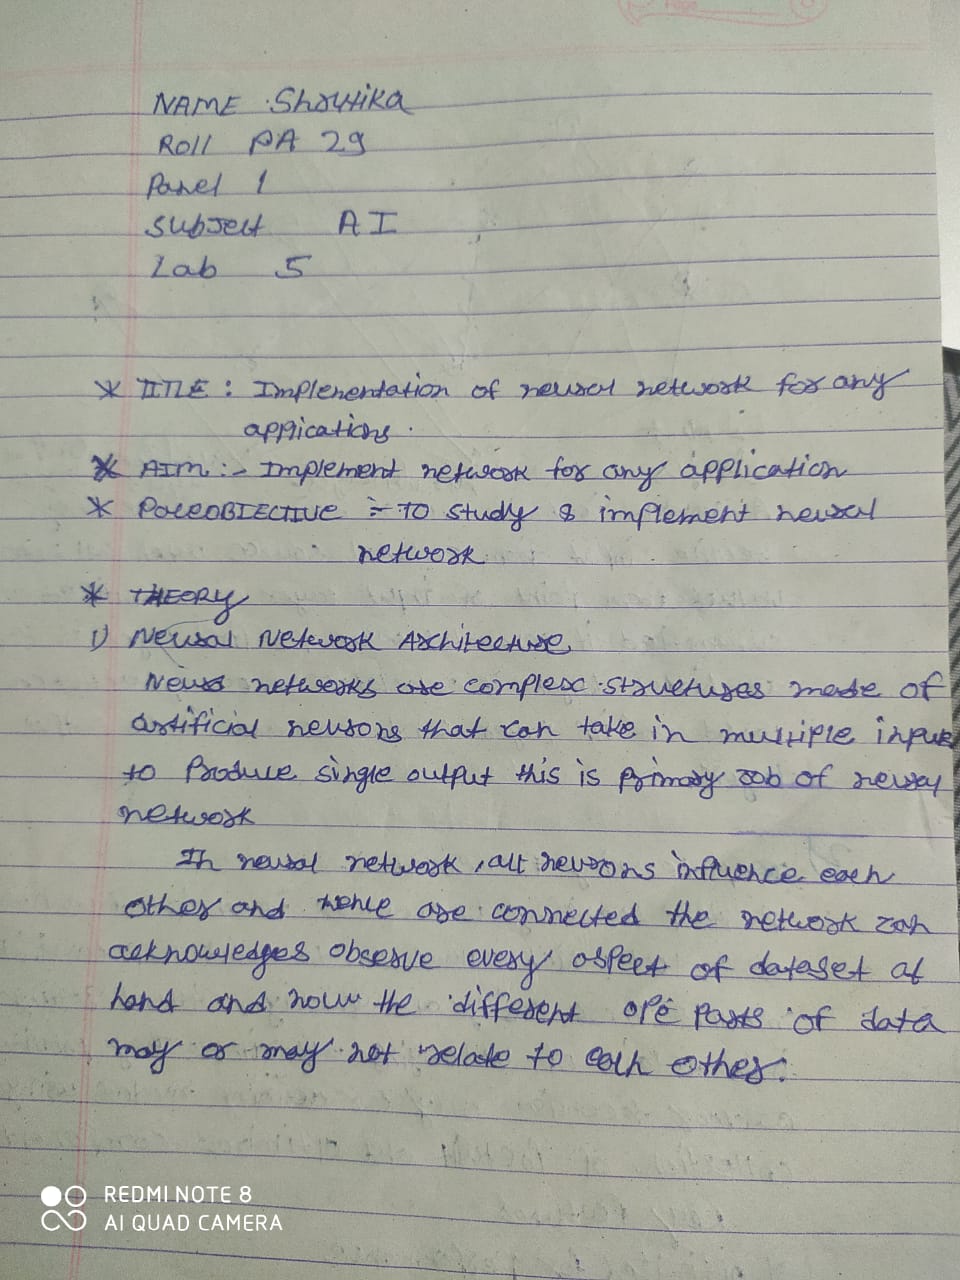 NAME Shrutika
Roll PA 29
Panel 1
Subject AI
Lab 5
* TITLE : Implementation of neural network for any
applications.
* AIM :- Implement network for any application
* OBJECTIVE :- To study & implement neural
network
* THEORY
1) Neural Network Architecture
networks are complex structures made of
artificial neurons that can take in multiple input
to produce single output this is primary job of neural
network
In neural network, all neurons influence each
other and hence are connected the network can
acknowledges observe every aspect of dataset at
hand and how the different parts of data
may or may not relate to each other.
REDMI NOTE 8
AI QUAD CAMERA